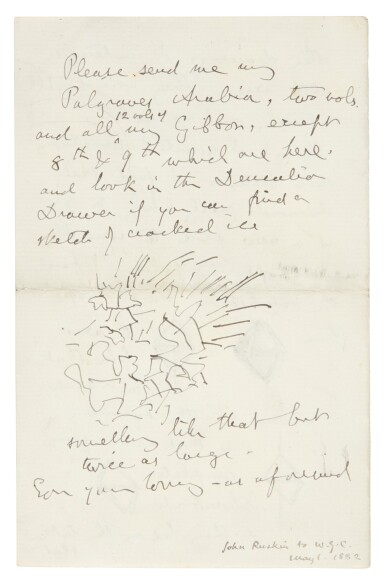 Please send me my
Palgraves Arabia, two vols.
and all 12 vols of my Gibbon, except
8th & 9th which are here.
and look in the
Drawer if you can find a
sketch of cracked ice
something like that but
twice as large.
Ever your loving - as aforesaid
John Ruskin to W.G.C.
May 1. 1882